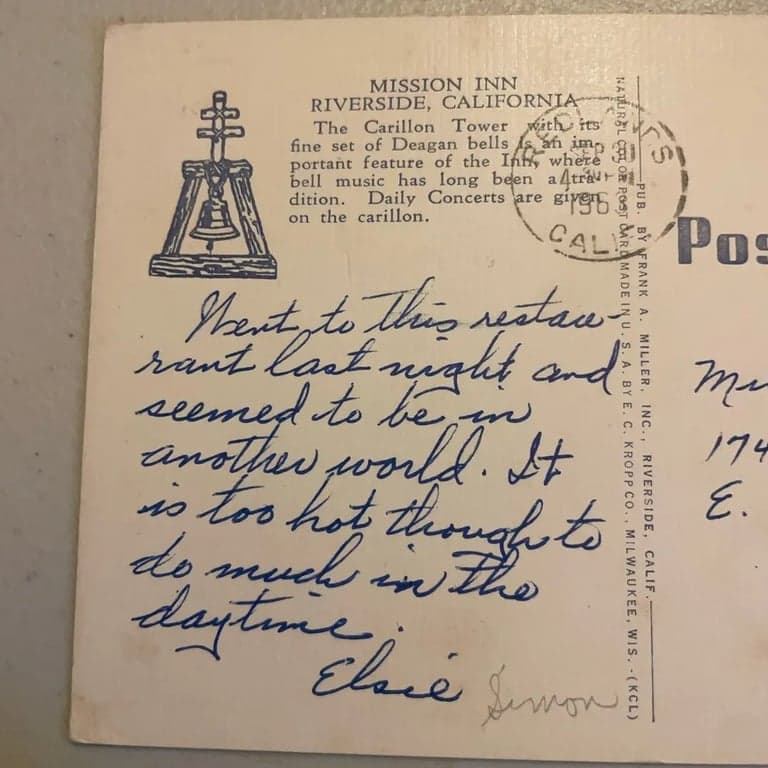 MISSION INN
RIVERSIDE, CALIFORNIA
The Carillon Tower with its
fine set of Deagan bells is an im-
portant feature of the Inn, where
bell music has long been a tra-
dition. Daily Concerts are given
on the carillon.
REDLANDS
CALIF
Went to this restau-
rant last night and
seemed to be in
another world. It
is too hot though to
do much in the
daytime.
Elsie Simon
NATURAL COLOR POST CARD MADE IN U. S. A. BY E. C. KROPP CO., MILWAUKEE, WIS. - (KCL)
PUB. BY FRANK A. MILLER, INC., RIVERSIDE, CALIF.
Pos
174
E.